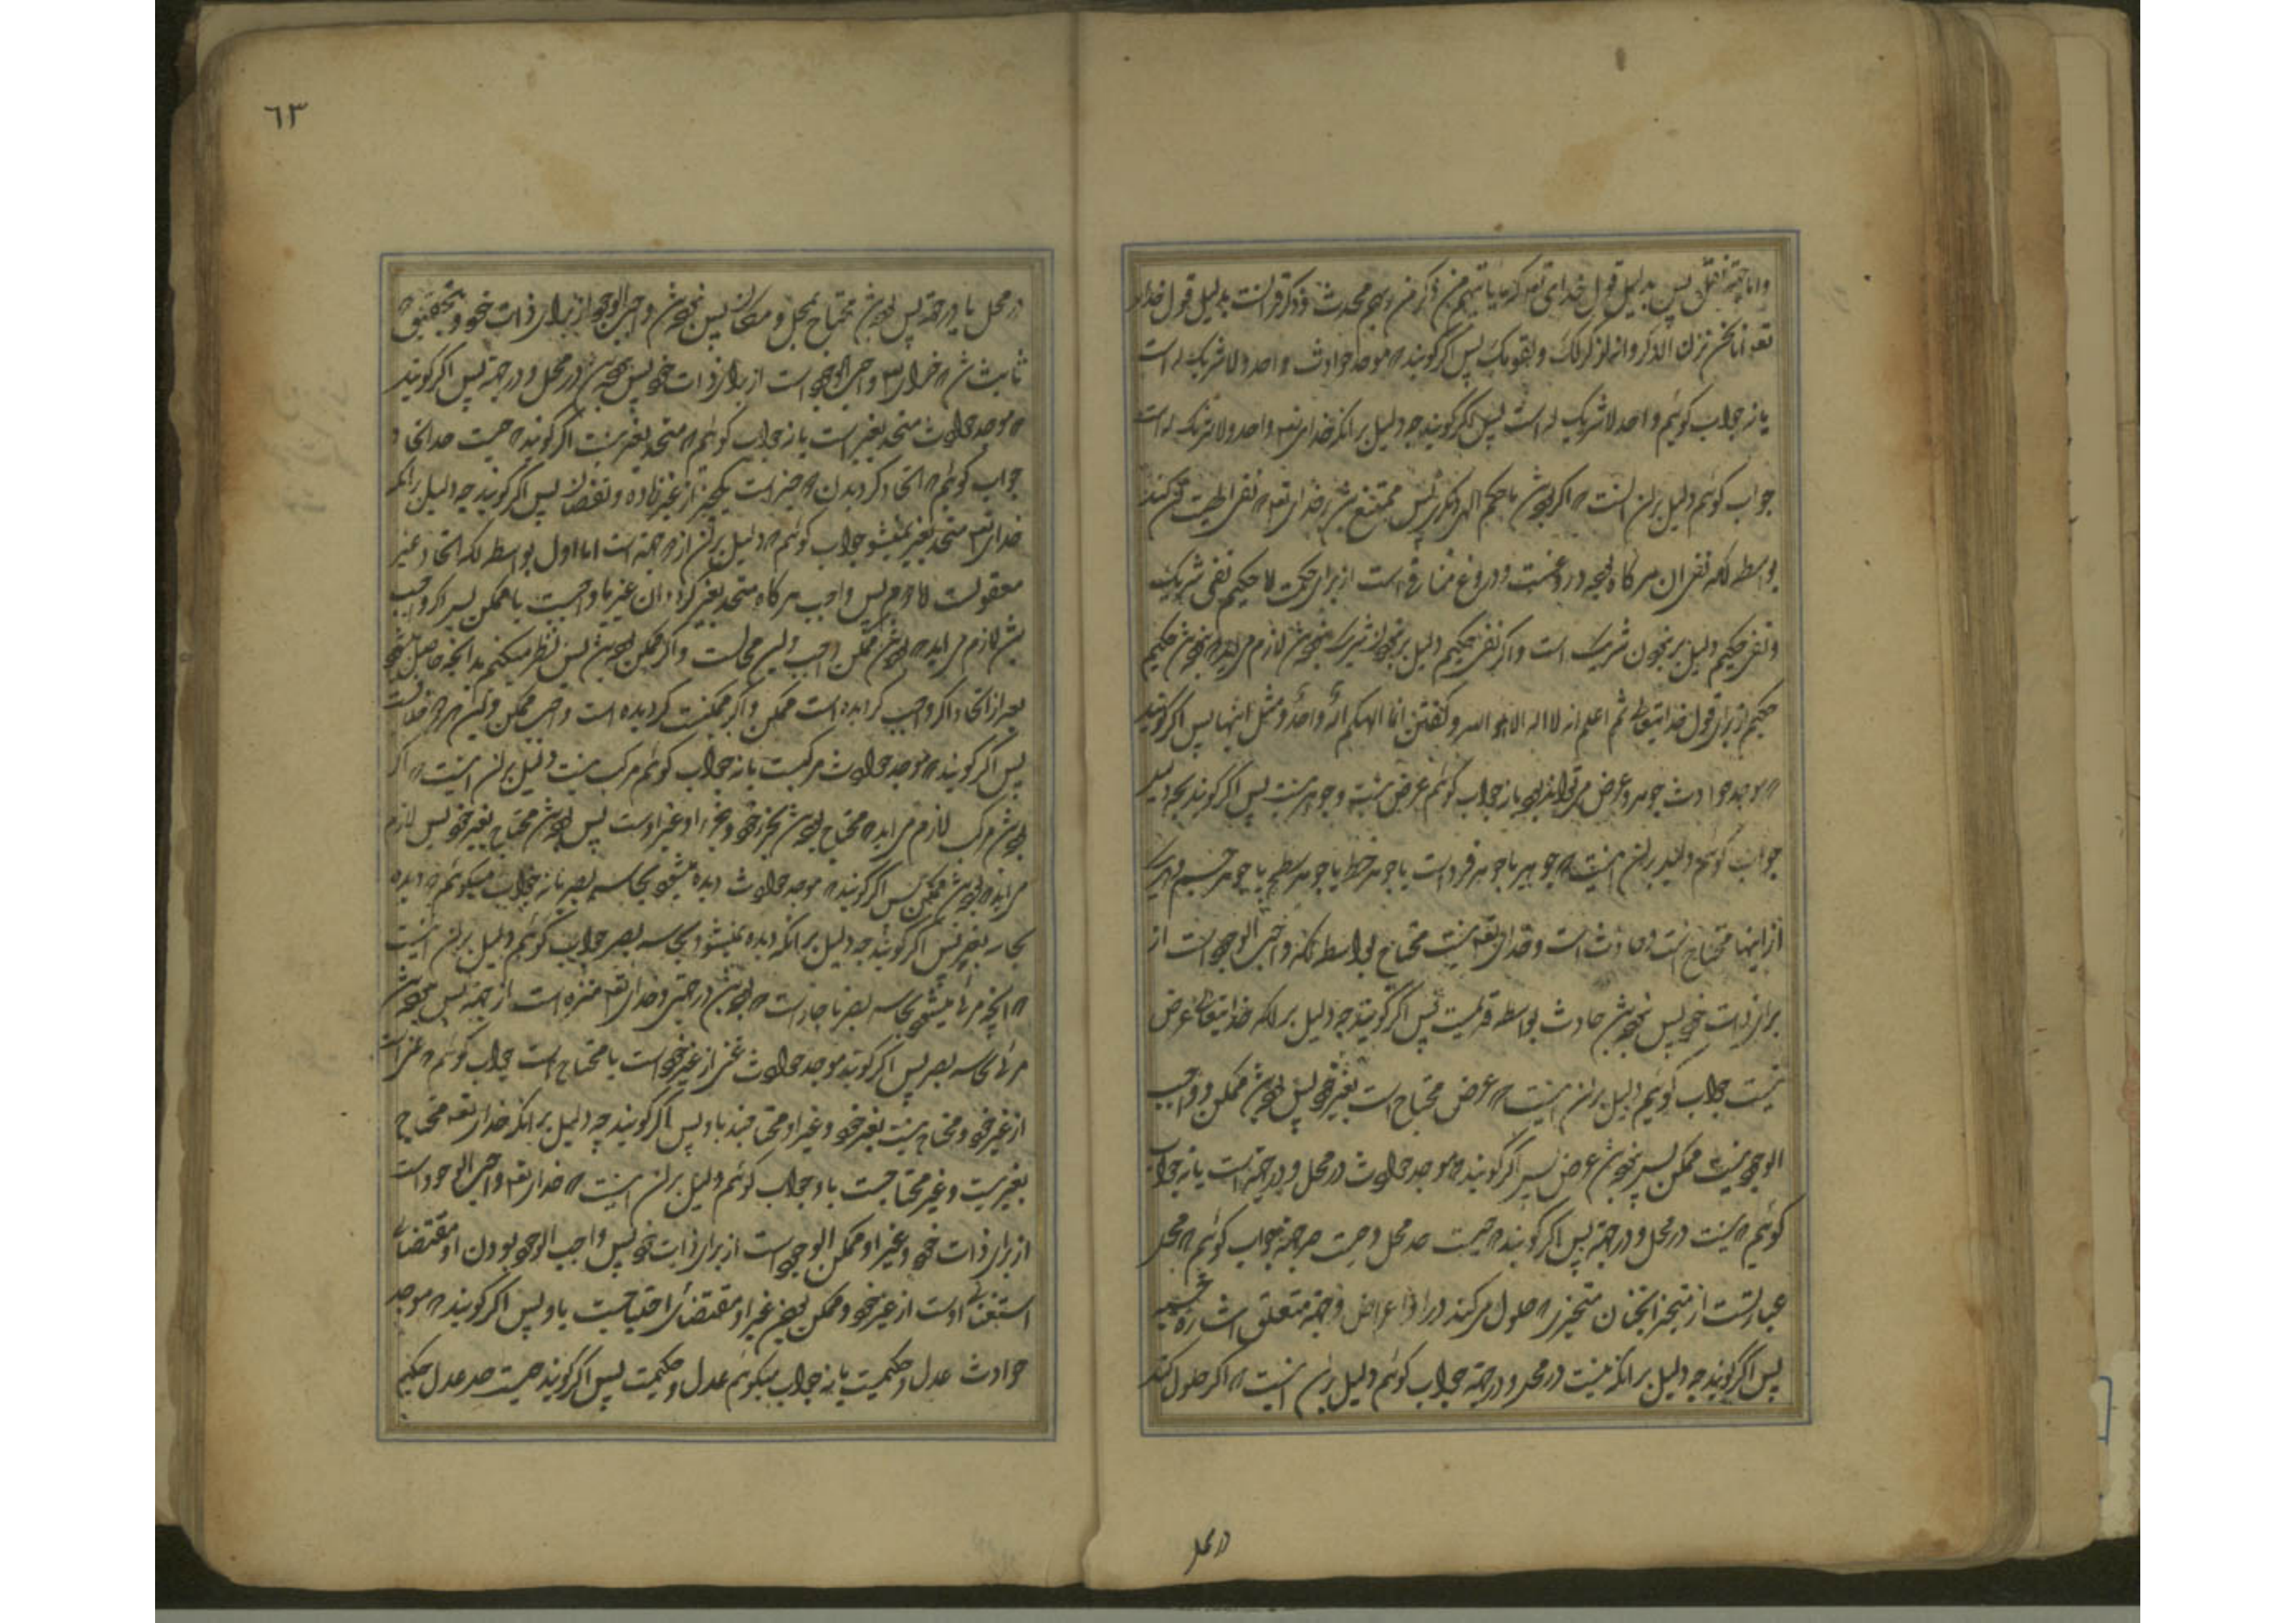 واما جهة نقل پس بدلیل قول خدای تعه که ما یاتیهم من ذکر من ربهم محدث و ذکر قرانست بدلیل قول خدای
تعه انا نحن نزلنا الذکر وانه لذکر لک ولقومک پس اگر گویند که موجد حوادث واحد ولا شریک له است
یا نه جواب گوئیم واحد لا شریک له است پس اگر گویند چه دلیل بر انکه خدای تعه واحد ولا شریک له است
جواب گوئیم دلیل بران انست که اگر بودی با حکیم الهی دیگر پس ممتنع شدی بر خدای تعه که نفی
بواسطه انکه نفی ان هرگاه در دروغست و دروغ منافی است از برای حکمت لا حکیم نفی شریک
و نفی حکیم دلیل بر نبودن شریک است واگر نفی حکیم دلیل بر نبودن شریک نبودی لازم می اید که نبودی حکیم
حکیم از برای قول خدایتعالی ثم اعلم انه لا اله الا هو الله و گفتن انما الهکم اله واحد و مثل اینها پس اگر گویند
که موجد حوادث جوهر و عرض می تواند بود یا نه جواب گوئیم عرض نیست و جوهر نیست پس اگر گویند بچه دلیل
جواب گوئیم دلیل بران اینست که جوهر یا جوهر فرد است یا جوهر خط یا جوهر سطح یا جوهر جسم و هر یک
از اینها محتاج است و حادث است و خدای تعه نیست محتاج بواسطه انکه واجب الوجود است از
برای ذات خود پس نبود حادث بواسطه قدیمیت پس اگر گویند چه دلیل بر انکه خدایتعالی عرض
نیست جواب گوئیم دلیل بران اینست که عرض محتاج است بغیر خود پس بودی ممکن و واجب
الوجود نیست ممکن پس نبودی عرض پس اگر گویند که موجد حوادث در محل و در جهة است یا نه جواب
گوئیم که نیست در محل و در جهة پس اگر گویند که چیست حد محل و چیست حد جهة جواب گوئیم که محل
عبارتست از متحیز انچنان متحیزی که حلول می کند در او اعراض و جهة متعلق اشاره حسیه
پس اگر گویند چه دلیل بر انکه نیست در محل و در جهة جواب گوئیم دلیل بران اینست که اگر حلول کند
در محل
٦٣
در محل یا در جهة پس بودی محتاج بمحل و مکان پس نبودی واجب الوجود از برای ذات خود و بتحقیق که
ثابت شد که خدای تعه واجب الوجود است از برای ذات خود پس نبودی در محل و در جهة پس اگر گویند
که موجد حوادث متحد بغیر است یا نه جواب گوئیم که متحد بغیر نیست اگر گویند که چیست حد اتحاد
جواب گوئیم که اتحاد گردیدن دو چیز است یکچیز از غیر زیاده و نقصان پس اگر گویند چه دلیل بر انکه
خدای تعه متحد بغیر نمیشود جواب گوئیم که دلیل بران از دو جهة است اما اول بواسطه انکه اتحاد غیر
معقولست لا دوم پس واجب هرگاه متحد بغیر گردد ان غیر یا واجبست یا ممکن پس اگر واجب
باشد لازم می اید که بودی ممکن واجب واین محالست واگر ممکن بودی پس نظر میکنیم بدانچه حاصل میشود
بعد از اتحاد اگر واجب گردیده است ممکن و اگر ممکنست گردیده است واجب ممکن واین هر دو محالست
پس اگر گویند که موجد حوادث مرکبست یا نه جواب گوئیم مرکب نیست دلیل بران اینست که اگر
بودی مرکب لازم می اید که محتاج بودی بجزء خود و جزء او غیر اوست پس بودی محتاج بغیر خود پس لازم
می اید که بودی ممکن پس اگر گویند که موجد حوادث دیده میشود بحاسه بصر یا نه جواب میگوئیم که دیده
بحاسه بصر نیست پس اگر گویند چه دلیل بر انکه دیده نمیشود بحاسه بصر جواب گوئیم دلیل بران اینست
که انچه مرئی میشود بحاسه بصر ناچار است که بودی در جهتی و خدای تعه منزه است از جهة پس نبودی
مرئی بحاسه بصر پس اگر گویند موجد حوادث غنی از غیر خود است یا محتاج است جواب گوئیم که غنی است
از غیر خود و محتاج نیست بغیر خود و غیر او محتاجند باو پس اگر گویند چه دلیل بر انکه خدای تعه محتاج
بغیر نیست و غیر محتاجست باو جواب گوئیم دلیل بران اینست که خدای تعه واجب الوجود است
از برای ذات خود و غیر او ممکن الوجود است از برای ذات خود پس واجب الوجود بودن او مقتضای
استغنای اوست از غیر خود و ممکن بودن غیر او مقتضای احتیاجست باو پس اگر گویند که موجد
حوادث عدل و حکیمست یا نه جواب میگوئیم عدل و حکیمست پس اگر گویند چیست حد عدل حکیم